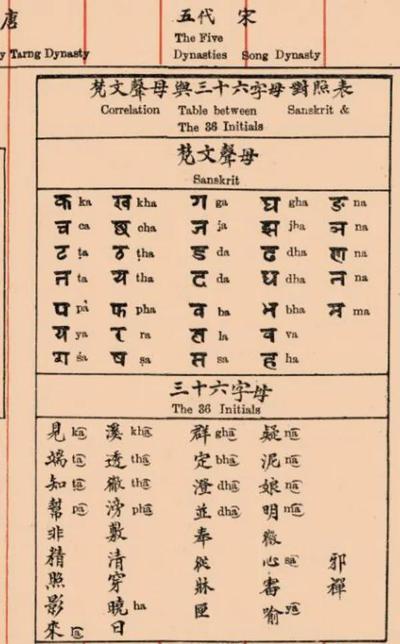 唐 五代 宋
y Tarng Dynasty The Five Dynasties Song Dynasty
梵文聲母與三十六字母對照表
Correlation Table between Sanskrit &
The 36 Initials
梵文聲母
Sanskrit
क ka ख kha ग ga घ gha ङ na
च ca छ cha ज ja झ jha ञ na
ट ṭa ठ ṭha ड da ढ dha ण na
त ta थ tha द da ध dha न na
प pa फ pha ब ba भ bha म ma
य ya र ra ल la व va
श śa ष ṣa स sa ह ha
三十六字母
The 36 Initials
見 ka 溪 kha 群 gha 疑 na
端 ta 透 tha 定 bha 泥 na
知 ta 徹 tha 澄 dha 娘 na
幫 pa 滂 pha 並 dha 明 ma
非 敷 奉 微
精 清 從 心 sa 邪
照 穿 牀 審 禪
影 曉 ha 匣 喻 ya
來 la 日